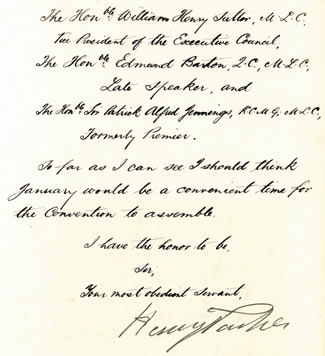 The Honble William Henry Suttor, M.L.C.
Vice President of the Executive Council,
The Honble Edmund Barton, Q.C., M.L.C,
Late Speaker, and
The Honble Sir Patrick Alfred Jennings, K.C.M.G., M.L.C.,
Formerly Premier.
So far as I can see I should think
January would be a convenient time for
the Convention to assemble.
I have the honor to be,
Sir,
Your most obedient servant,
Henry Parkes